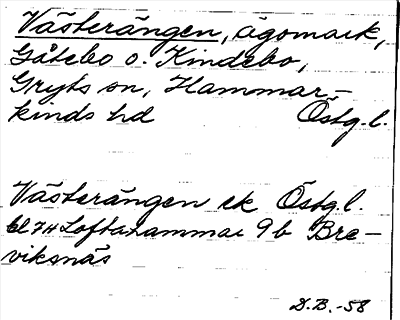 Västerängen, ägomark,
Gåtebo o. Kindebo,
Gryts sn, Hammar-
kinds hd Östg.l.
Västerängen ek Östgl.
bl 74 Loftahammar 9b Bre-
viksnäs
D.B.-58